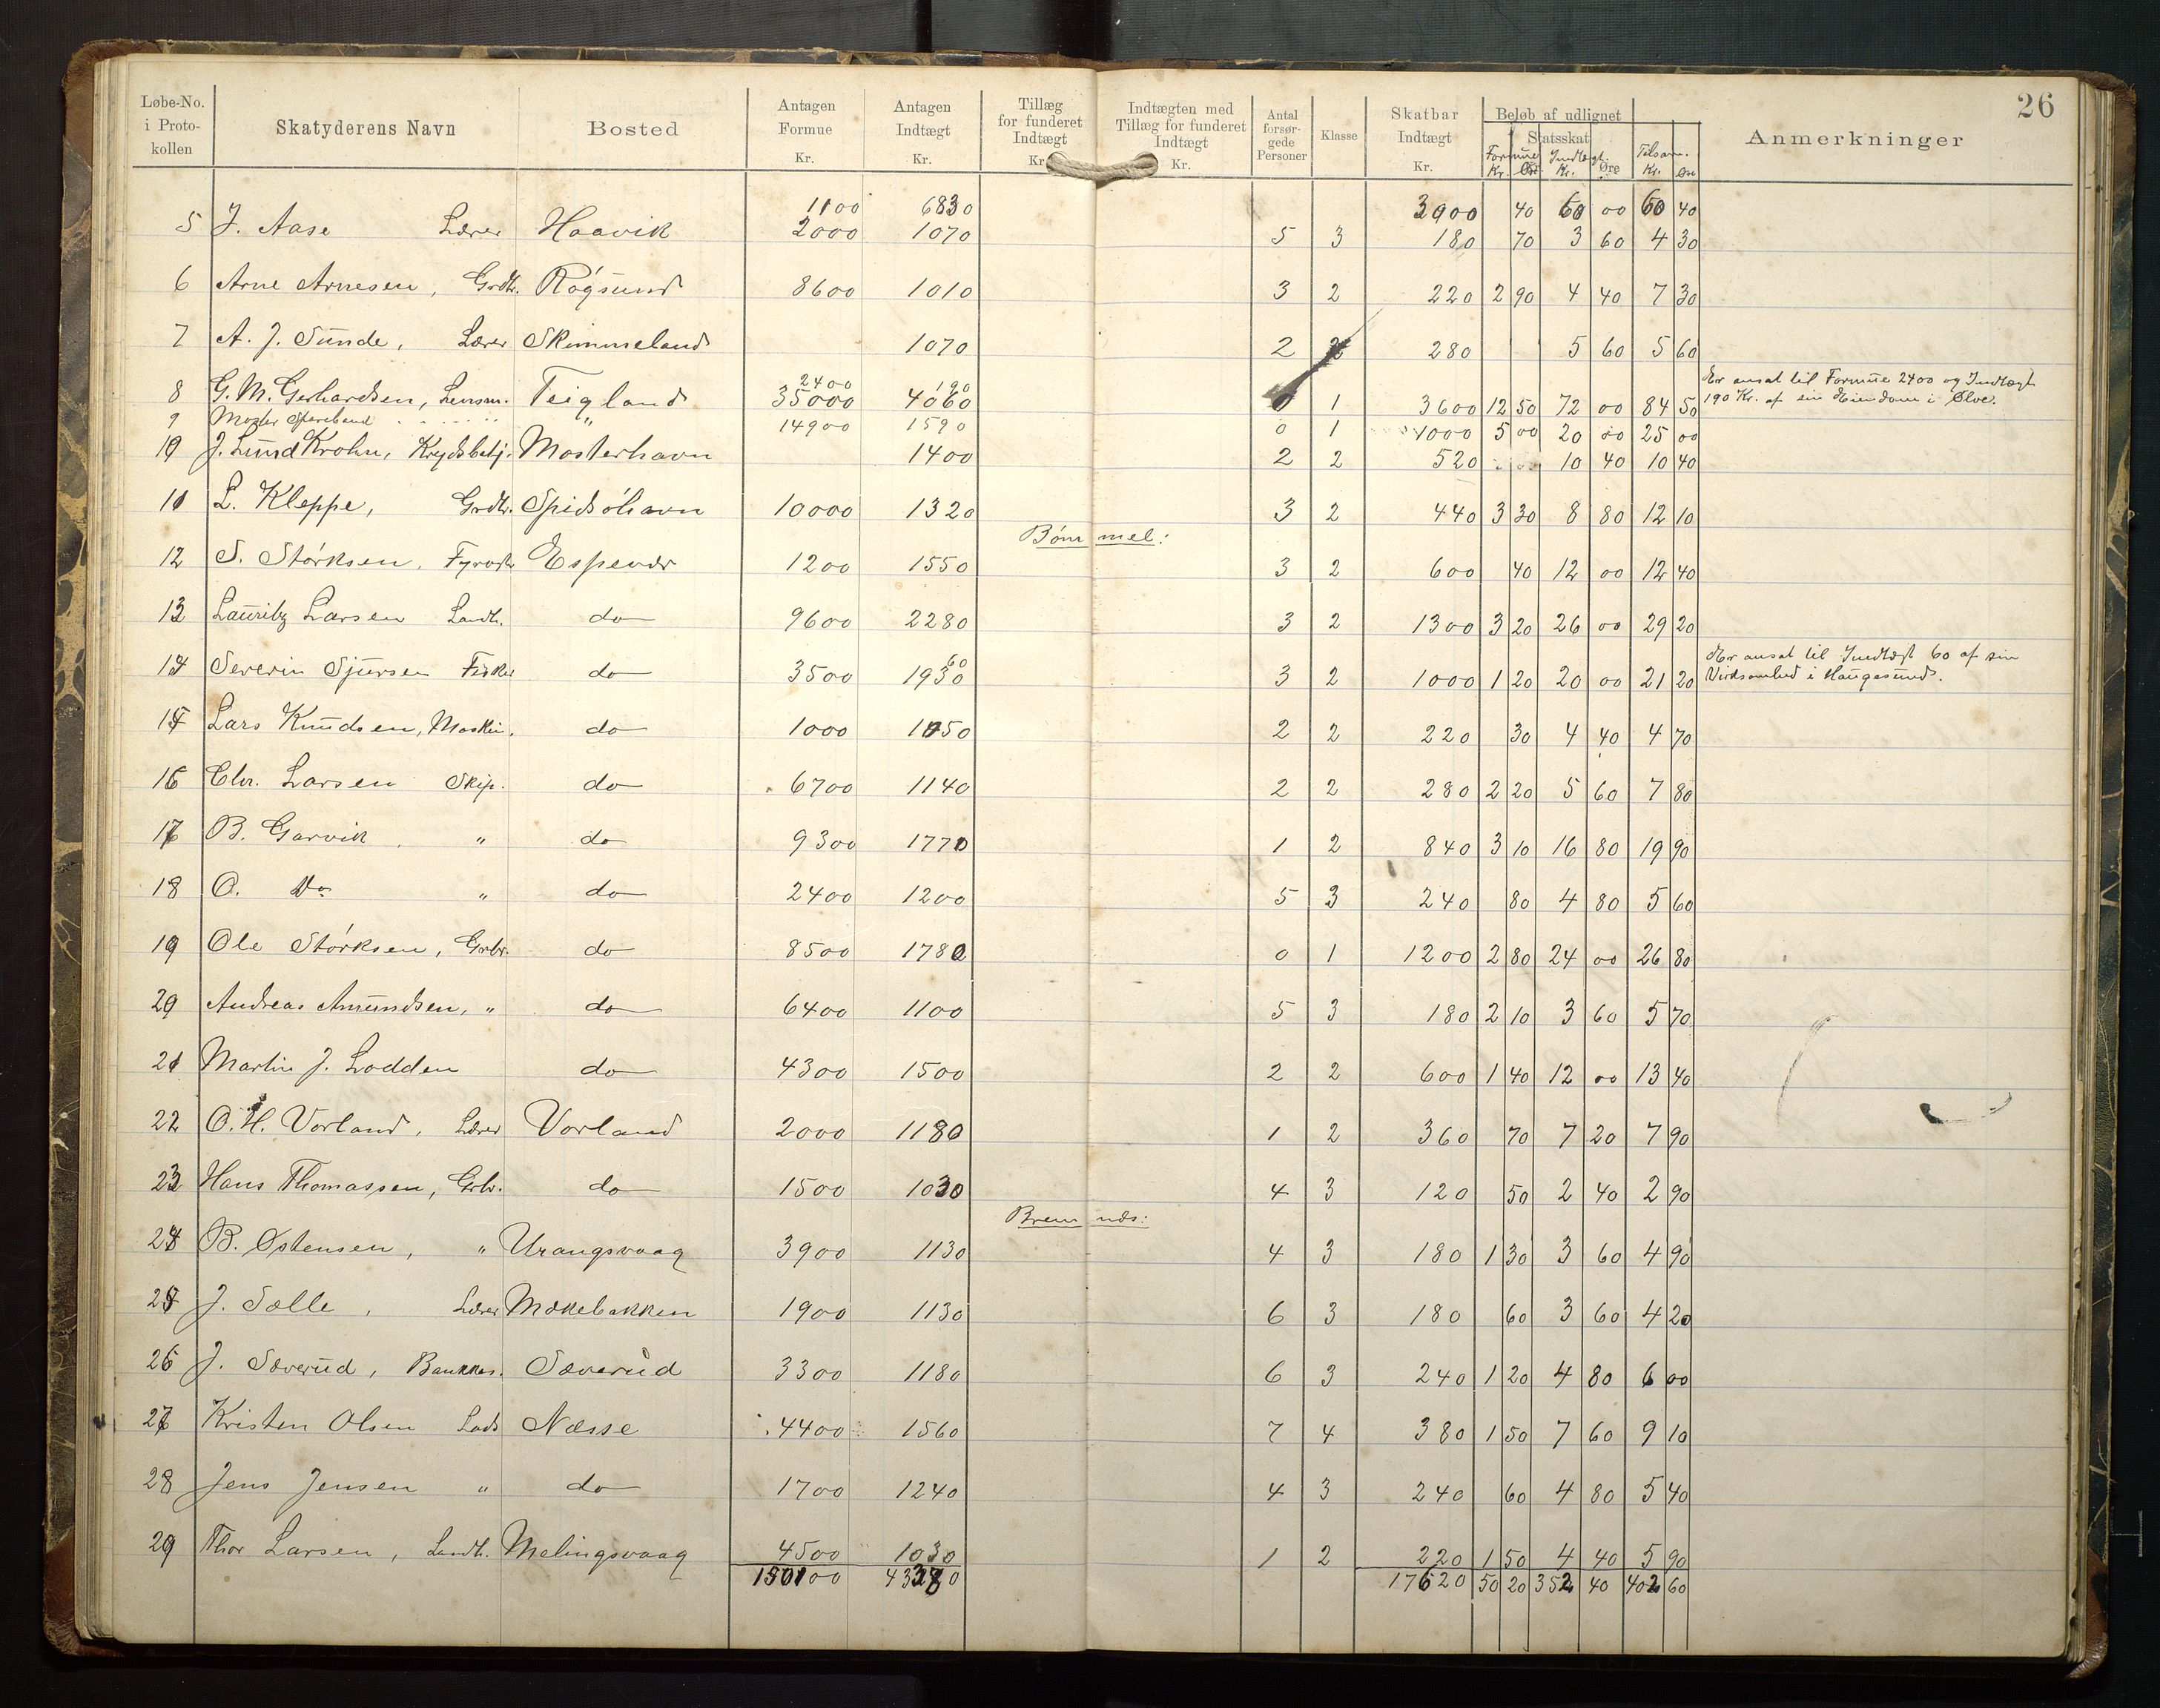 26
Løbe-No. i Protokollen | Skatyderens Navn | Bosted | Antagen Formue Kr. | Antagen Indtægt Kr. | Tillæg for funderet Indtægt Kr. | Indtægten med Tillæg for funderet Indtægt Kr. | Antal forsørgede Personer | Klasse | Skatbar Indtægt Kr. | Beløb af udlignet Statsskat Formue Kr. Øre Indtægt. Kr. Øre Tilsam. Kr. Øre | Anmerkninger
1100 | 6830 | 3900 | 40 | 60 00 | 60 40
5 | J. Aase Lærer | Haavik | 2000 | 1070 | 5 | 3 | 180 | 70 | 3 60 | 4 30
6 | Arne Arnesen, Grdbr. | Røgsund | 8600 | 1010 | 3 | 2 | 220 | 2 90 | 4 40 | 7 30
7 | A. J. Sunde, Lærer | Skimmeland | 1070 | 2 | 2 | 280 | 5 60 | 5 60
2400 | 190 | Er ansat til Formue 2400 og Indtægt
8 | G. M. Gerhardsen, Lensm. | Teigland | 35000 | 4060 | 0 | 1 | 3600 | 12 50 | 72 00 | 84 50 | 190 Kr. af sin Eiendom i Ølve.
9 | Moster Sparebank | " | 14900 | 1590 | 0 | 1 | 1000 | 5 00 | 20 00 | 25 00
10 | J. Lund Krohn, Krydsbetj. | Mosterhavn | 1400 | 2 | 2 | 520 | 10 40 | 10 40
11 | L. Kleppe, Grdbr. | Spidsøhavn | 10000 | 1320 | 3 | 2 | 440 | 3 30 | 8 80 | 12 10
Bømmel:
12 | S. Størksen, | Espevær | 1200 | 1550 | 3 | 2 | 600 | 40 | 12 00 | 12 40
13 | Lauritz Larsen Landh. | do | 9600 | 2280 | 3 | 2 | 1300 | 3 20 | 26 00 | 29 20
60 | Er ansat til Indtægt 60 af sin
14 | Severin Sjursen Fisker | do | 3500 | 1930 | 3 | 2 | 1000 | 1 20 | 20 00 | 21 20 | Virksomhed i Haugesund.
15 | Lars Knudsen, Maskin. | do | 1000 | 1050 | 2 | 2 | 220 | 30 | 4 40 | 4 70
16 | Chr. Larsen Skip. | do | 6700 | 1140 | 2 | 2 | 280 | 2 20 | 5 60 | 7 80
17 | B. Garvik " | do | 9300 | 1770 | 1 | 2 | 840 | 3 10 | 16 80 | 19 90
18 | O. Do " | do | 2400 | 1200 | 5 | 3 | 240 | 80 | 4 80 | 5 60
19 | Ole Størksen, Grbr. | do | 8500 | 1780 | 0 | 1 | 1200 | 2 80 | 24 00 | 26 80
20 | Andreas Amundsen, " | do | 6400 | 1100 | 5 | 3 | 180 | 2 10 | 3 60 | 5 70
21 | Martin J. Lodden | do | 4300 | 1500 | 2 | 2 | 600 | 1 40 | 12 00 | 13 40
22 | O. H. Vorland, Lærer | Vorland | 2000 | 1180 | 1 | 2 | 360 | 70 | 7 20 | 7 90
23 | Hans Thomassen, Grbr. | do | 1500 | 1030 | 4 | 3 | 120 | 50 | 2 40 | 2 90
Bremnæs:
24 | B. Østensen, " | Urangsvaag | 3900 | 1130 | 4 | 3 | 180 | 1 30 | 3 60 | 4 90
25 | J. Sølle, Lærer | Mækebakken | 1900 | 1130 | 6 | 3 | 180 | 60 | 3 60 | 4 20
26 | J. Sæverud, Bankkas. | Sæverud | 3300 | 1180 | 6 | 3 | 240 | 1 20 | 4 80 | 6 00
27 | Kristen Olsen Lods | Næsse | 4400 | 1560 | 7 | 4 | 380 | 1 50 | 7 60 | 9 10
28 | Jens Jensen " | do | 1700 | 1240 | 4 | 3 | 240 | 60 | 4 80 | 5 40
29 | Thor Larsen, Landh. | Melingsvaag | 4500 | 1030 | 1 | 2 | 220 | 1 50 | 4 40 | 5 90
150100 | 43380 | 17620 | 50 20 | 352 40 | 402 60